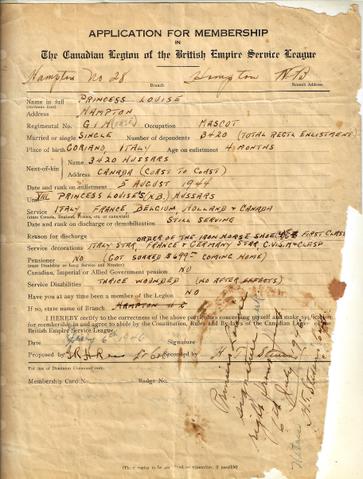 APPLICATION FOR MEMBERSHIP
IN
The Canadian Legion of the British Empire Service League
Hampton No 28 Hampton N.B.
Branch Branch Address
Name in full PRINCESS LOUISE
Address HAMPTON
Regimental No. G1H Occupation MASCOT
Married or single SINGLE Number of dependents 3420 (TOTAL REGTL ENLISTMENT)
Place of birth CORIANO, ITALY Age on enlistment 4 MONTHS
Next-of-kin 3420 HUSSARS
Address CANADA (COAST TO COAST)
Date and rank on enlistment 5 AUGUST 1944
Unit VIII PRINCESS LOUISE'S (N.B.) HUSSARS
Service ITALY FRANCE BELGIUM HOLLAND & CANADA
Date and rank on discharge or demobilization STILL SERVING
Reason for discharge ORDER OF THE IRON HORSE SHOE FIRST CLASS
Service decorations ITALY STAR, FRANCE & GERMANY STAR, C.V.S.M & CLASP
Pensioner NO (GOT SOAKED $699 COMING HOME)
Canadian, Imperial or Allied Government pension NO
Service Disabilities TWICE WOUNDED (NO AFTER EFFECTS)
Have you at any time been a member of the Legion NO
If so, state name of Branch HAMPTON N.B.
I HEREBY certify to the correctness of the above particulars concerning myself and make application
for membership in and agree to abide by the Constitution, Rules and By-laws of the Canadian Legion
British Empire Service League.
Date Signature
Proposed by
Membership Card No. Badge No.
Princess Louise
signature
6th July 1946